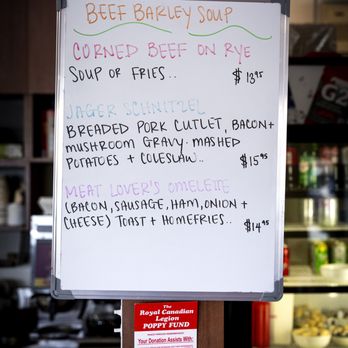 BEEF BARLEY SOUP
CORNED BEEF ON RYE
SOUP OR FRIES.. $13.95
JAGER SCHNITZEL
BREADED PORK CUTLET, BACON+
MUSHROOM GRAVY. MASHED
POTATOES + COLESLAW.. $15.95
MEAT LOVER'S OMELETTE
(BACON, SAUSAGE, HAM, ONION +
CHEESE) TOAST + HOMEFRIES.. $14.95
The
Royal Canadian
Legion
POPPY FUND
Your Donation Assists With: